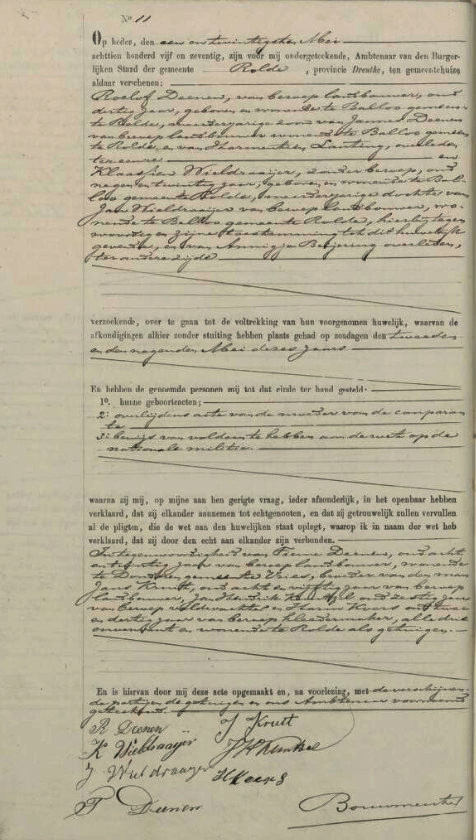 No. 11
Op heden, den een en twintigsten Mei
achttien honderd vijf en zeventig, zijn voor mij ondergeteekende, Ambtenaar van den Burger-
lijken Stand der gemeente Rolde, provincie Drenthe, ten gemeentehuize
aldaar verschenen:
Roelof Deenen, van beroep landbouwer, oud
dertig jaar, geboren en wonende te Balloo gemeente
te Rolde, meerderjarige zoon van Jannes Deenen
van beroep landbouwer wonende te Balloo gemeen
te Rolde, en van Harmentien Lanting, overleden,
ter eenre en
Klaassien Wieldraaijer, zonder beroep, oud
negen en twintig jaar, geboren en wonende te Bal-
loo gemeente Rolde, meerderjarige dochter van
Jan Wieldraaijer van beroep landbouwer, wo-
nende te Balloo gemeente Rolde, hierbij tegen
woordig en zijne toestemming tot dit huwelijk
gevende, en van Annigje Beijering overleden,
ter andere zijde
verzoekende, over te gaan tot de voltrekking van hun voorgenomen huwelijk, waarvan de
afkondigingen alhier zonder stuiting hebben plaats gehad op zondagen den tweeden
en den negenden Mei dezes jaars
En hebben de genoemde personen mij tot dat einde ter hand gesteld:
1o. hunne geboorteacten;
2o. overlijdens acte van de moeder van de comparan
te
3o. bewijs van voldaan te hebben aan de wet op de
nationale militie.
waarna zij mij, op mijne aan hen gerigte vraag, ieder afzonderlijk, in het openbaar hebben
verklaard, dat zij elkander aannemen tot echtgenooten, en dat zij getrouwelijk zullen vervullen
al de pligten, die de wet aan den huwelijken staat oplegt, waarop ik in naam der wet heb
verklaard, dat zij door den echt aan elkander zijn verbonden.
In tegenwoordigheid van Tieme Deenen, oud acht
en zestig jaar van beroep landbouwer, wonende
te gemeente Vries, van den man
Jans Kruit, oud acht en vijftig jaar van beroep
landbouwer, Jan Hendrik Kunkel oud zestig jaar
van beroep veldwachter en Harm Keers oud twee
en dertig jaar van beroep kleedermaker, alle drie
en wonende te Rolde als getuigen.
En is hiervan door mij deze acte opgemaakt en, na voorlezing, met de verschijnen
de partijen de getuigen en ons Ambtenaar voornoemd
geteekend.
R Deenen
J Kruit
K Wieldraaijer
J H Kunkel
J Wieldraayer
H Keers
T Deenen